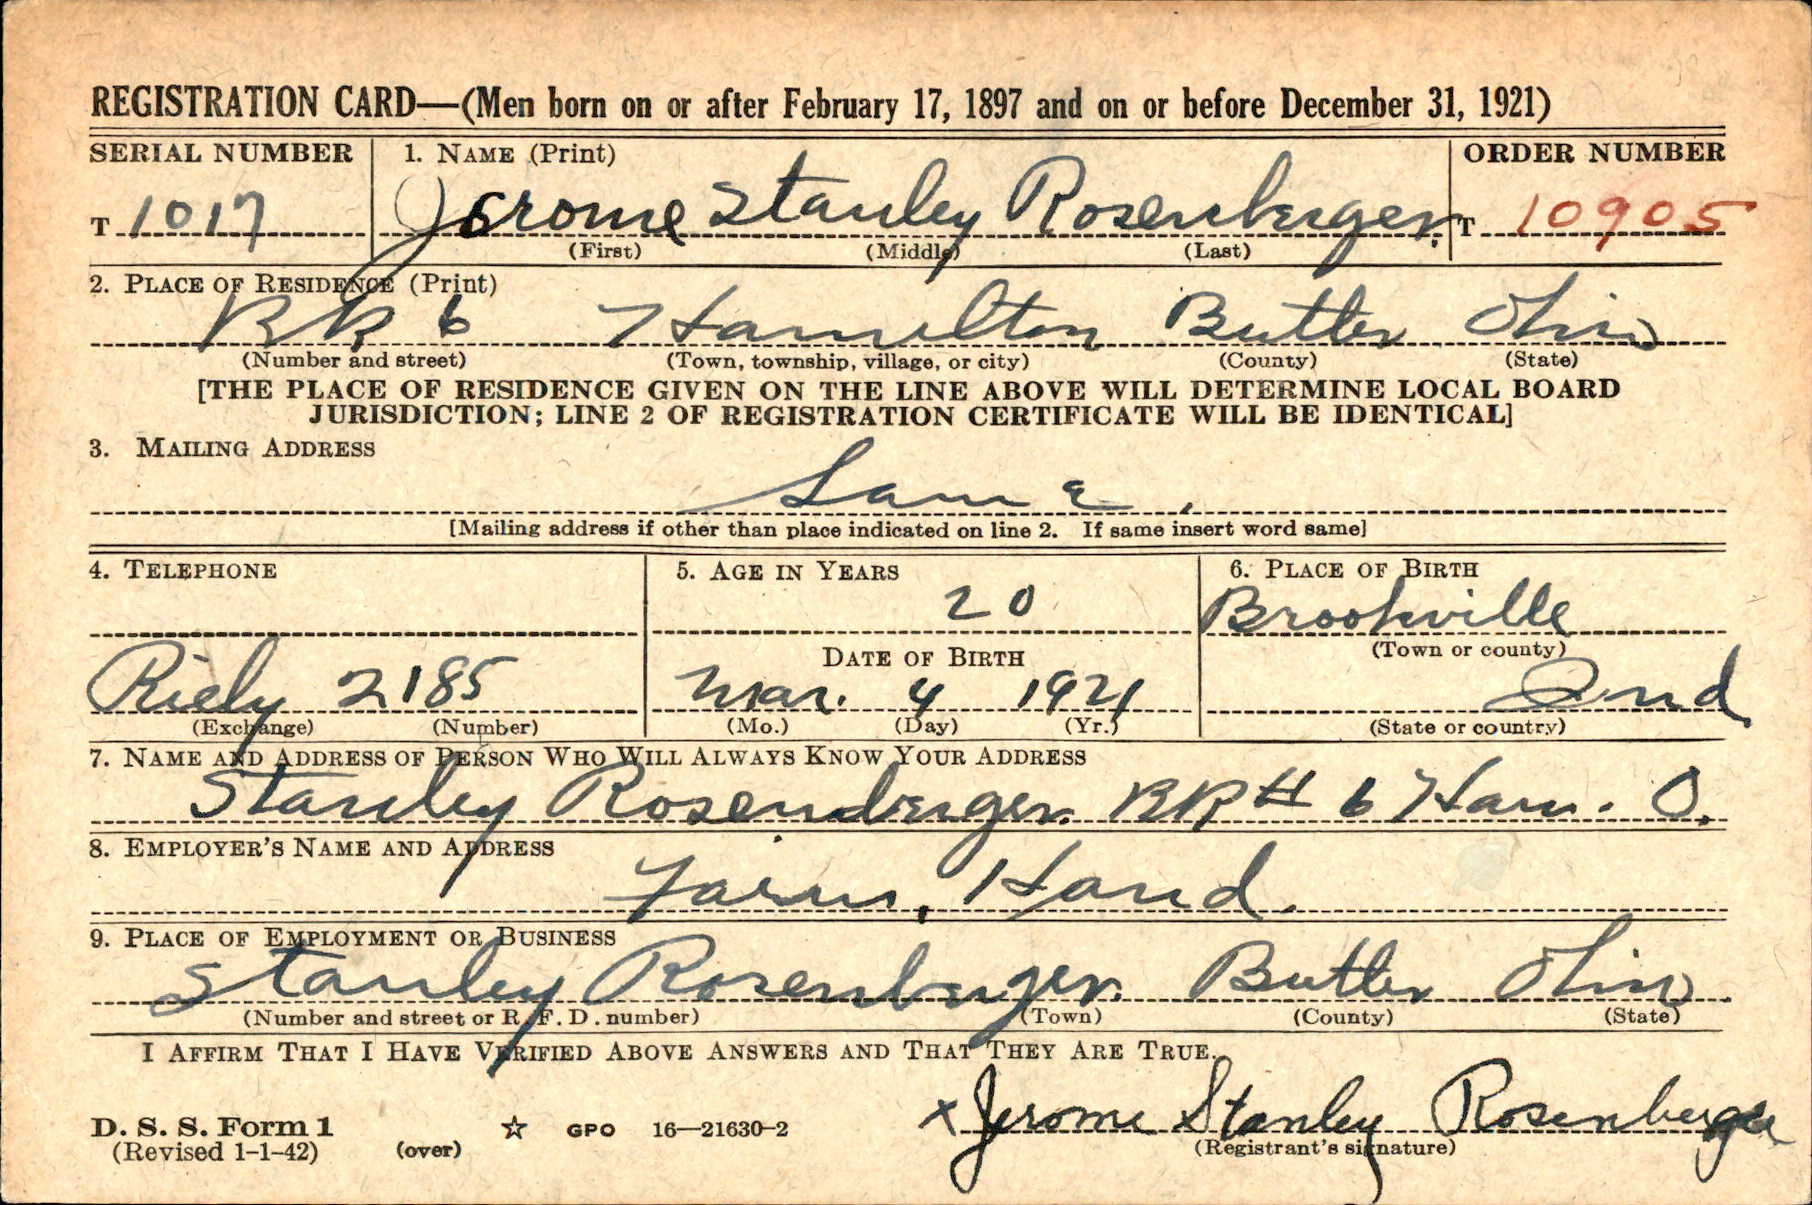 REGISTRATION CARD—(Men born on or after February 17, 1897 and on or before December 31, 1921)
SERIAL NUMBER 1. NAME (Print) ORDER NUMBER
T 1017 Jerome Stanley Rosenberger. T 10905
(First) (Middle) (Last)
2. PLACE OF RESIDENCE (Print)
RR 6 Hamilton Butler Ohio
(Number and street) (Town, township, village, or city) (County) (State)
[THE PLACE OF RESIDENCE GIVEN ON THE LINE ABOVE WILL DETERMINE LOCAL BOARD
JURISDICTION; LINE 2 OF REGISTRATION CERTIFICATE WILL BE IDENTICAL]
3. MAILING ADDRESS
Same.
[Mailing address if other than place indicated on line 2. If same insert word same]
4. TELEPHONE 5. AGE IN YEARS 6. PLACE OF BIRTH
20 Brookville
DATE OF BIRTH (Town or county)
Riely 2185 Mar. 4 1921 Ind.
(Exchange) (Number) (Mo.) (Day) (Yr.) (State or country)
7. NAME AND ADDRESS OF PERSON WHO WILL ALWAYS KNOW YOUR ADDRESS
Stanley Rosenberger. RR # 6 Ham. O.
8. EMPLOYER'S NAME AND ADDRESS
Farm, Hand.
9. PLACE OF EMPLOYMENT OR BUSINESS
Stanley Rosenberger. Butler Ohio.
(Number and street or R. F. D. number) (Town) (County) (State)
I AFFIRM THAT I HAVE VERIFIED ABOVE ANSWERS AND THAT THEY ARE TRUE.
D. S. S. Form 1 x Jerome Stanley Rosenberger
(Revised 1-1-42) (over) ☆ GPO 16—21630-2 (Registrant's signature)